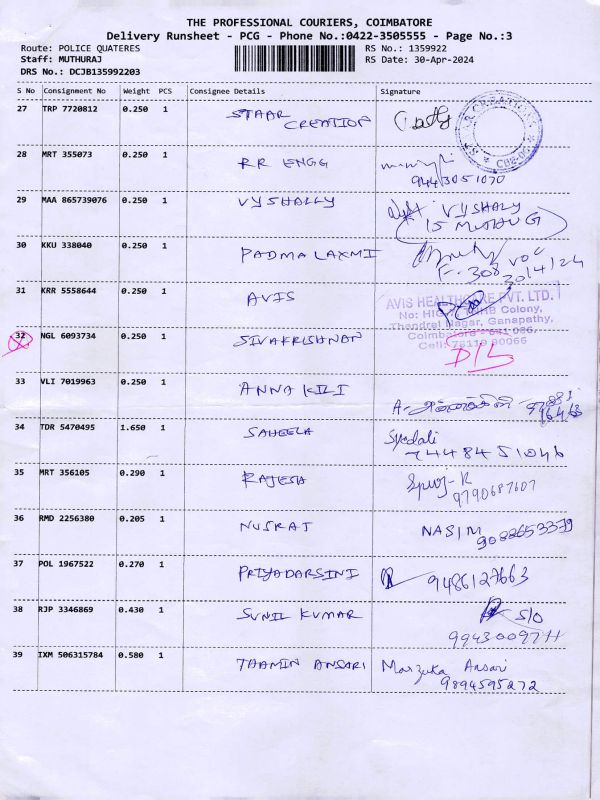 THE PROFESSIONAL COURIERS, COIMBATORE
Delivery Runsheet - PCG - Phone No.:0422-3505555 - Page No.:3
Route: POLICE QUATERES RS No.: 1359922
Staff: MUTHURAJ RS Date: 30-Apr-2024
DRS No.: DCJB135992203
S No Consignment No Weight PCS Consignee Details Signature
27 TRP 7720812 0.250 1 STAAR CREATION
28 MRT 355073 0.250 1 RR ENGG
9443051070
29 MAA 865739076 0.250 1 VYSHALLY VYSHALY
30 KKU 338040 0.250 1 PADMA LAXMI
30/4/24
31 KRR 5558644 0.250 1 AVIS
AVIS HEALTHCARE PVT. LTD.
Colony,
Nagar, Ganapathy,
32 NGL 6093734 0.250 1 SIVAKRISHNAN
Coimbatore - 641 006.
Cell: 76110 90066
D/L
33 VLI 7019963 0.250 1 ANNA KILI
34 TDR 5470495 1.650 1 SAHEELA Syedali
7448451046
35 MRT 356105 0.290 1 RAJESH
9790687607
36 RMD 2256380 0.205 1 NUSRAT NASIM
9088653379
37 POL 1967522 0.270 1 PRIYADARSINI 9486127663
38 RJP 3346869 0.430 1 SUNIL KUMAR S/O
39 IXM 506315784 0.580 1 THAMIN ANSARI Marzuka Ansari
9894595272